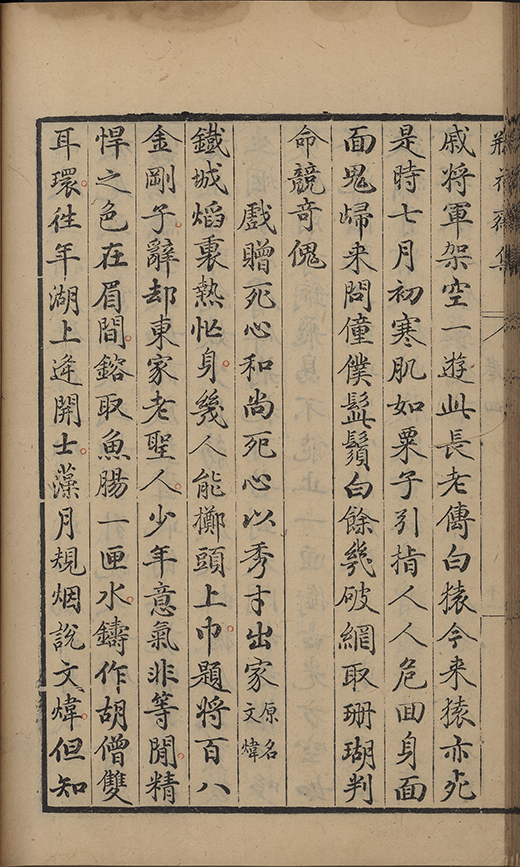 瓶花齋集
戚將軍架空一遊此長老傳白猿今来猿亦死
是時七月初寒肌如粟子引指人人危回身面
面鬼歸来問僮僕髭鬚白餘幾破網取珊瑚判
命競奇傀
戲贈死心和尚死心以秀才出家原名文煒
鐵城熖裏熱忙身幾人能擲頭上巾題將百八
金剛子辭却東家老聖人少年意氣非等閒精
悍之色在眉間鎔取魚腸一匣水鑄作胡僧雙
耳環往年湖上逄開士藻月規烟說文煒但知